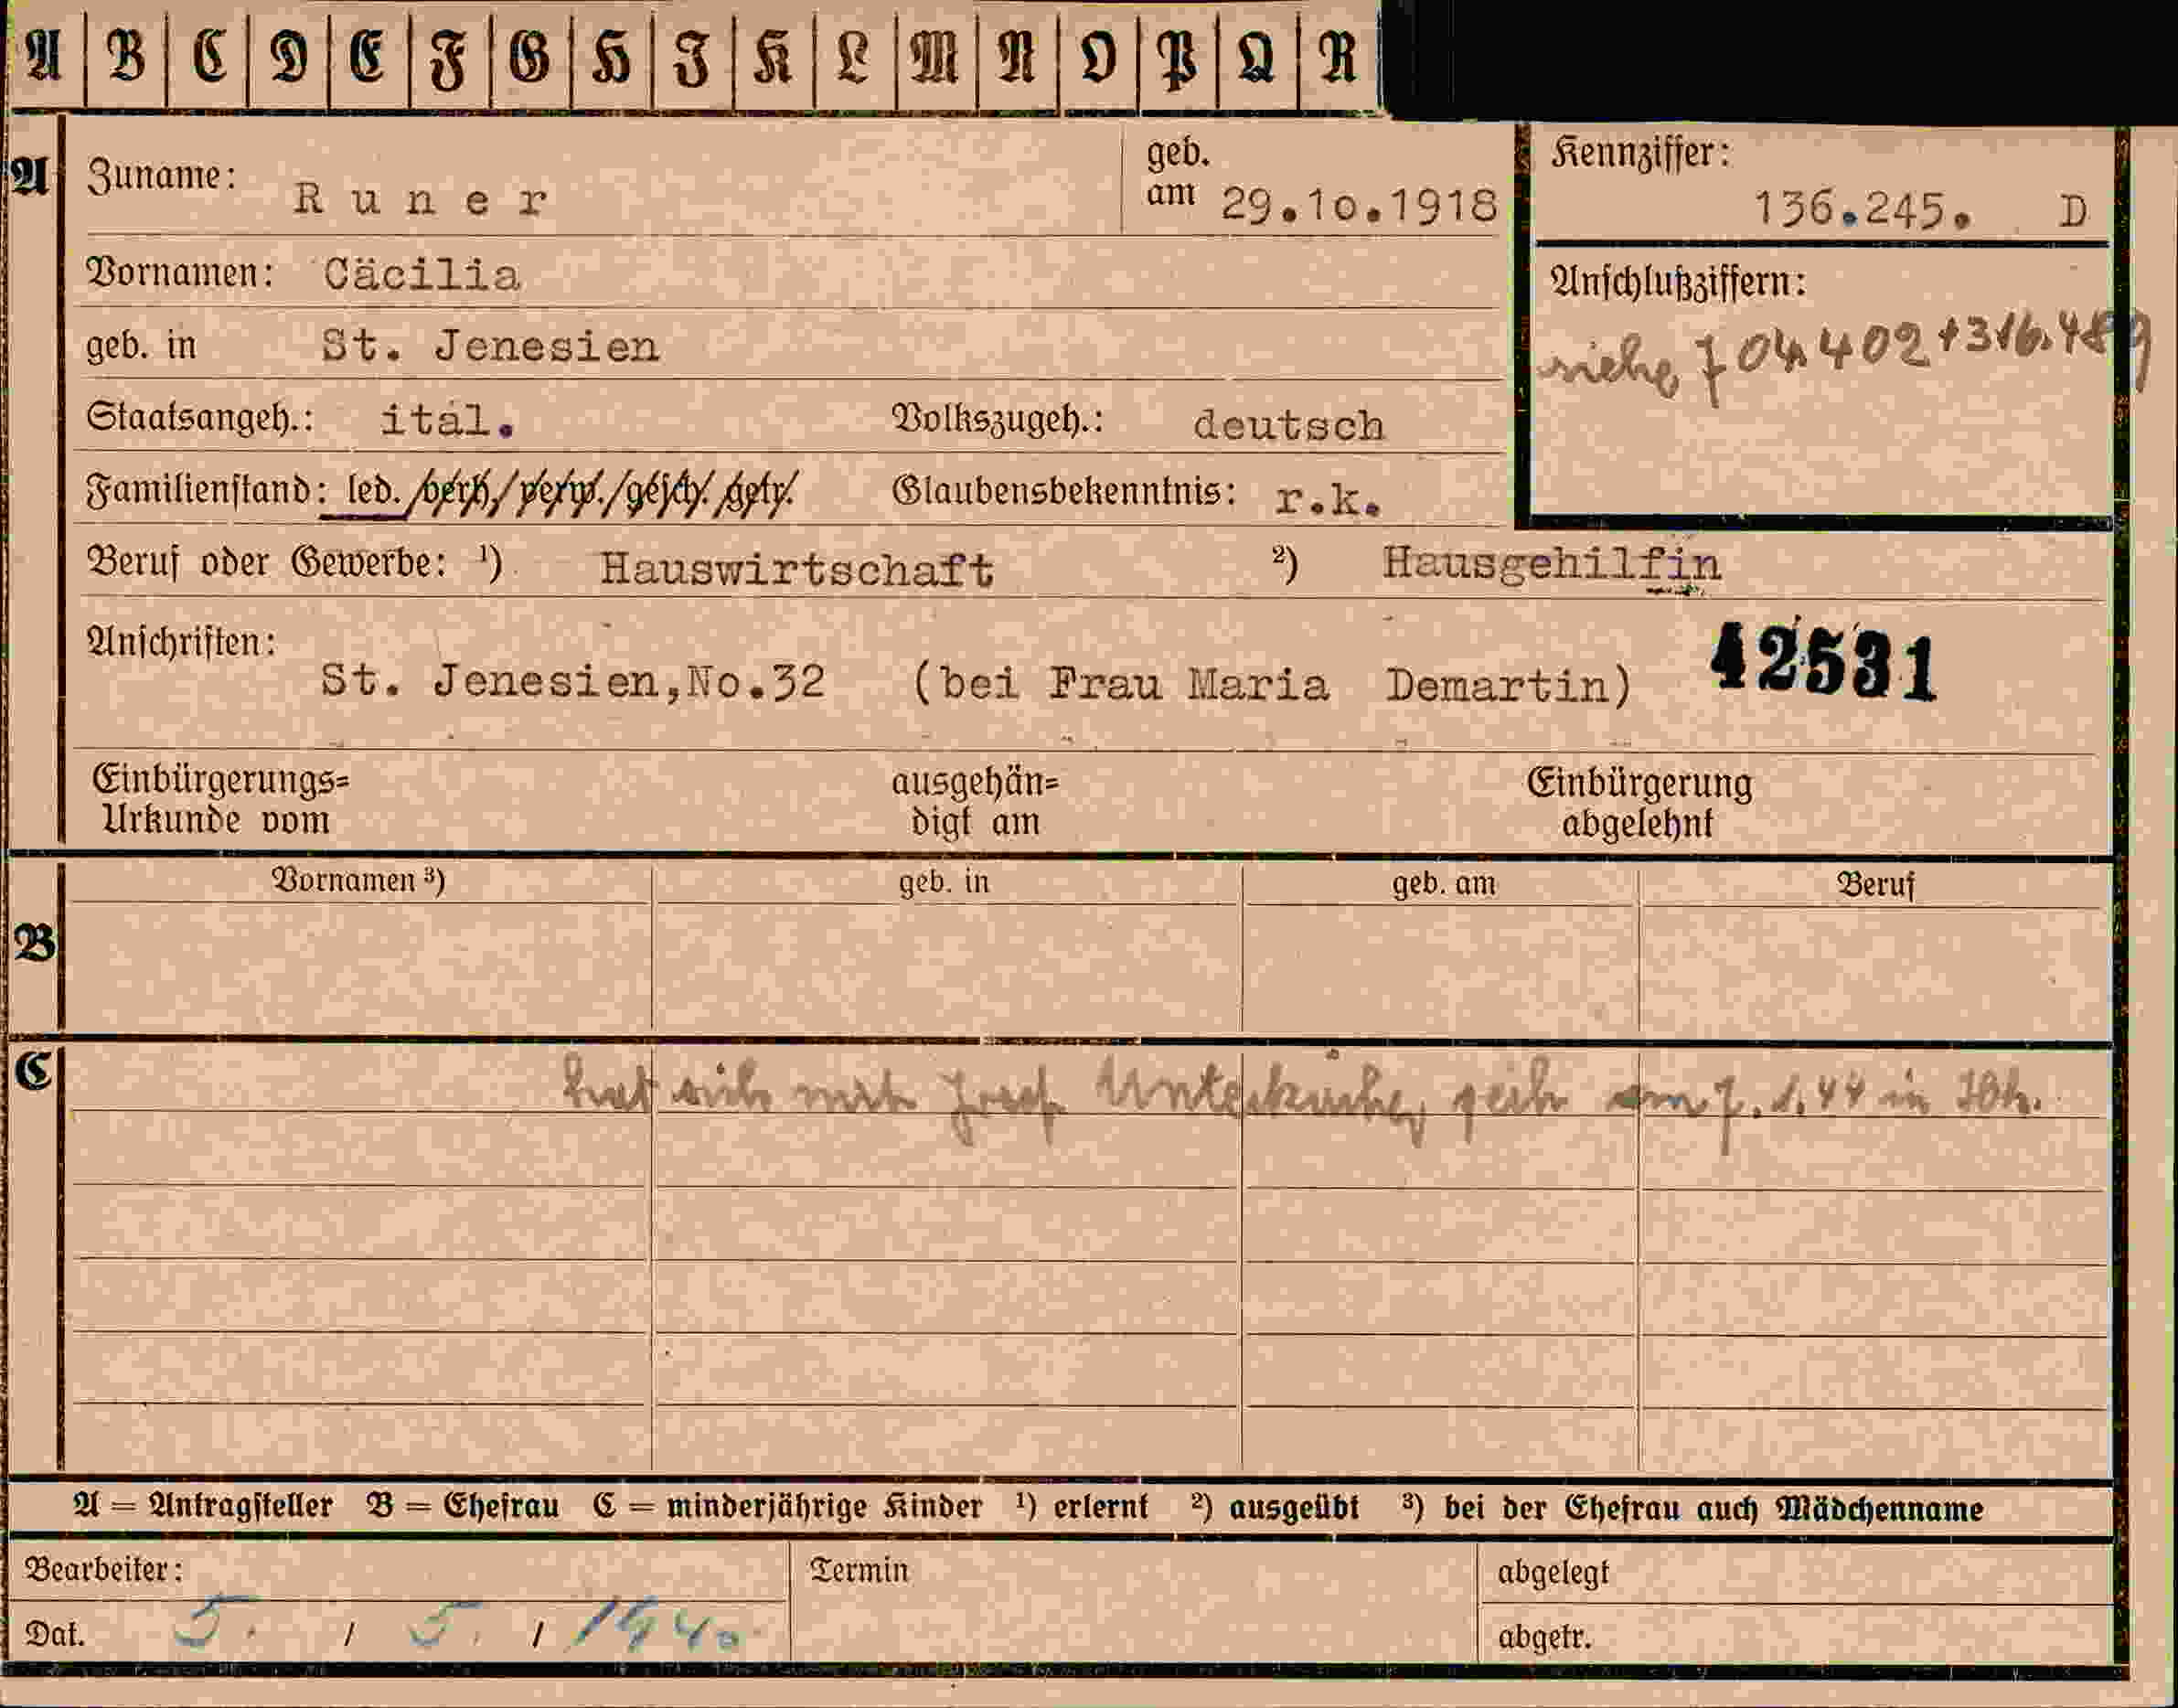 A B C D E F G H I K L M N O P Q R
A Zuname: Runer geb. am 29.10.1918 Kennziffer: 136.245. D
Vornamen: Cäcilia
Anschlußziffern:
geb. in St. Jenesien
siehe 704.402+316.489
Staatsangeh.: ital. Volkszugeh.: deutsch
Familienstand: led./verh./verw./gesch./getr. Glaubensbekenntnis: r.k.
Beruf oder Gewerbe: ¹) Hauswirtschaft ²) Hausgehilfin
Anschriften:
St. Jenesien,No.32 (bei Frau Maria Demartin) 42531
Einbürgerungs=
Urkunde vom
ausgehän=
digt am
Einbürgerung
abgelehnt
B Vornamen ³) geb. in geb. am Beruf
C hat sich mit Josef am 7.1.44 in
A = Antragsteller B = Ehefrau C = minderjährige Kinder ¹) erlernt ²) ausgeübt ³) bei der Ehefrau auch Mädchenname
Bearbeiter: Termin abgelegt
Dat. 5. / 5. / 1940 abgetr.